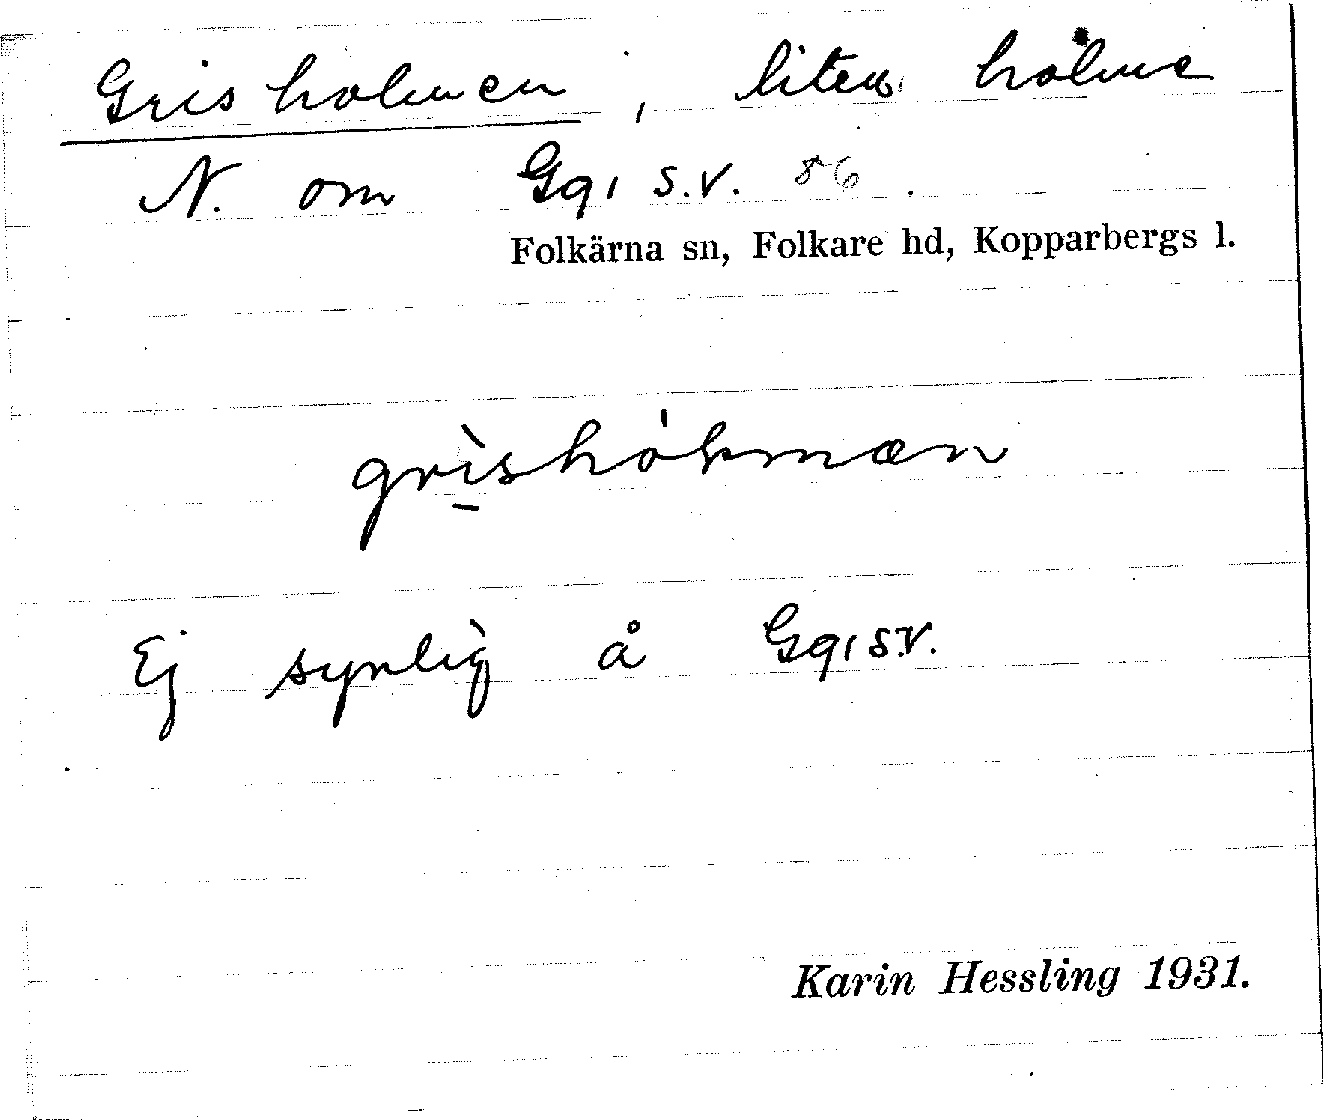 Grisholmen, liten holme
N. om Gq1 S.V. 86.
Folkärna sn, Folkare hd, Kopparbergs l.
Ej synlig å Gq1 S.V.
Karin Hessling 1931.